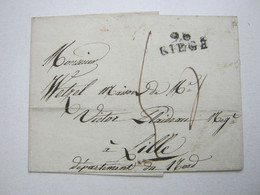 96
LIEGE
Monsieur
Wetzel Maison de Mr
Victor
à
Lille
département du Nord